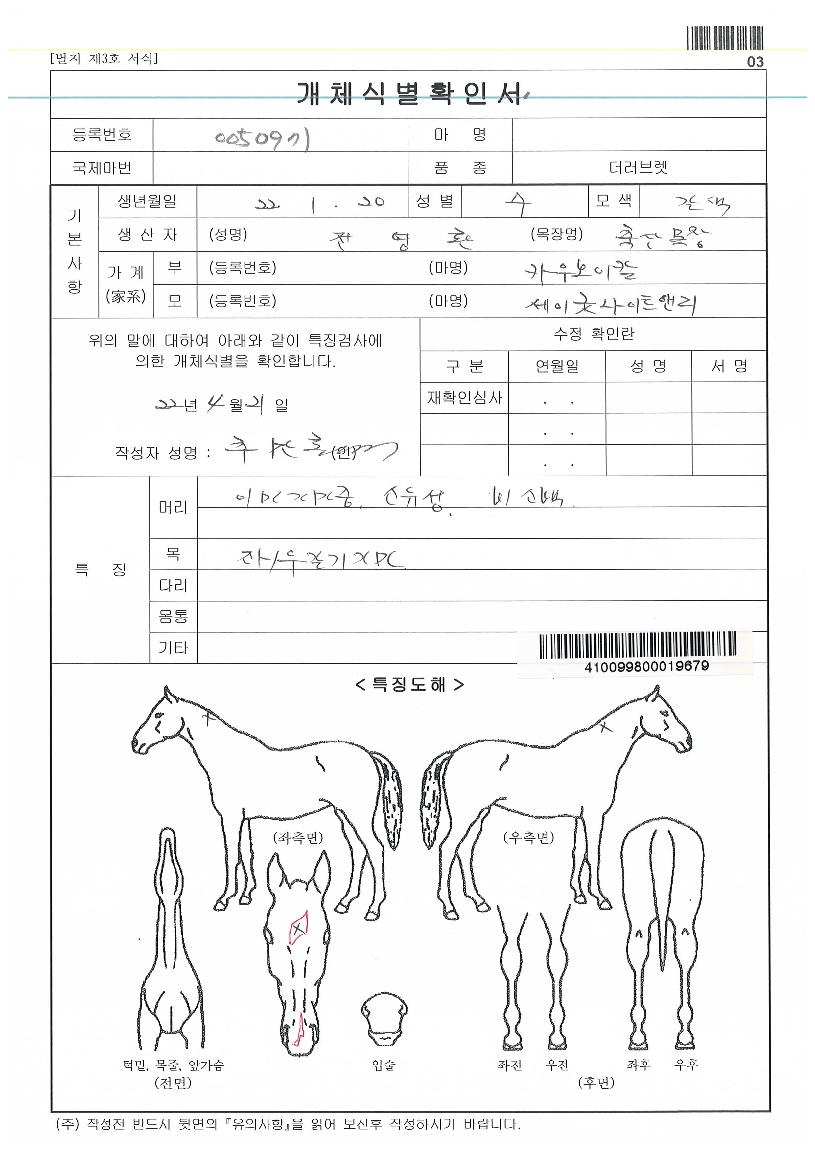 [별지 제3호 서식]
03
개체식별확인서
등록번호 0050971 마 명
국제마번 품 종 더러브렛
기본사항
생년월일 22 1 . 20 성 별 수 모 색 갈색
생 산 자 (성명) 전 영 환 (목장명) 축산목장
가 계 (家系) 부 (등록번호) (마명) 카우보이칼
모 (등록번호) (마명)
위의 말에 대하여 아래와 같이 특징검사에
의한 개체식별을 확인합니다.
22년 4월 21일
작성자 성명 : (인)
수정 확인란
구 분 연월일 성 명 서 명
재확인심사 . .
. .
. .
특 징
머리
목
다리
몸통
기타
410099800019679
< 특징도해 >
(좌측면) (우측면)
턱밑, 목줄, 앞가슴 입술 좌전 우전 좌후 우후
(전면) (후면)
(주) 작성전 반드시 뒷면의 『유의사항』을 읽어 보신후 작성하시기 바랍니다.